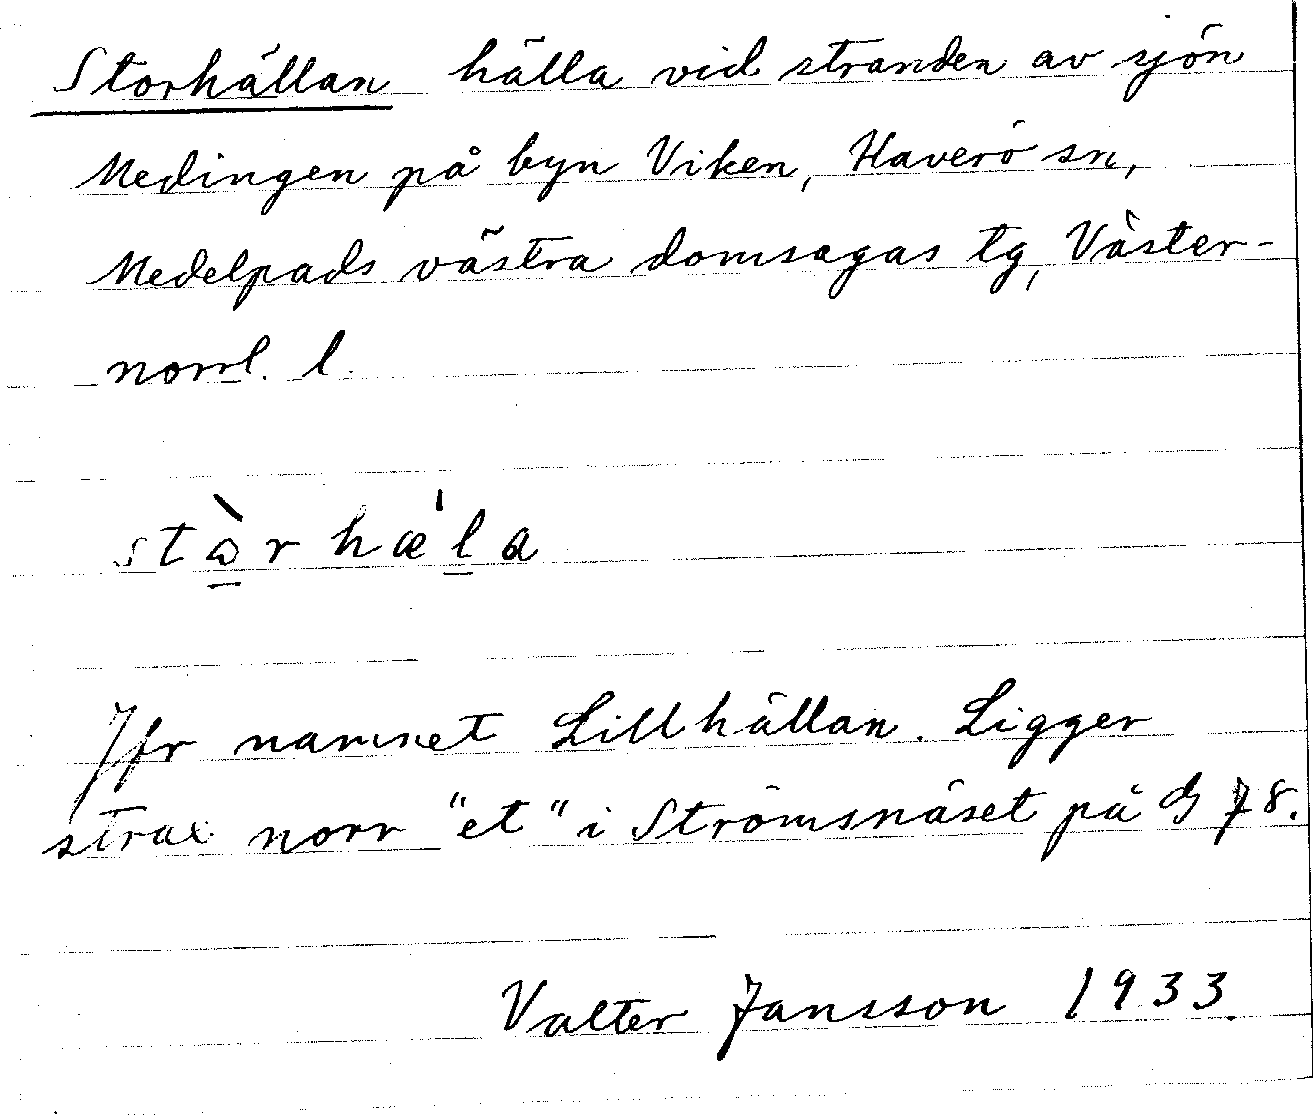 Storhällan hälla vid stranden av sjön
Medingen på byn Viken, Haverö sn,
Medelpads västra domsagas tg, Väster-
norrl. l.
stòrhæ'la
Jfr namnet Lillhällan. Ligger
strax norr "et" i Strömsnäset på G 78.
Valter Jansson 1933.